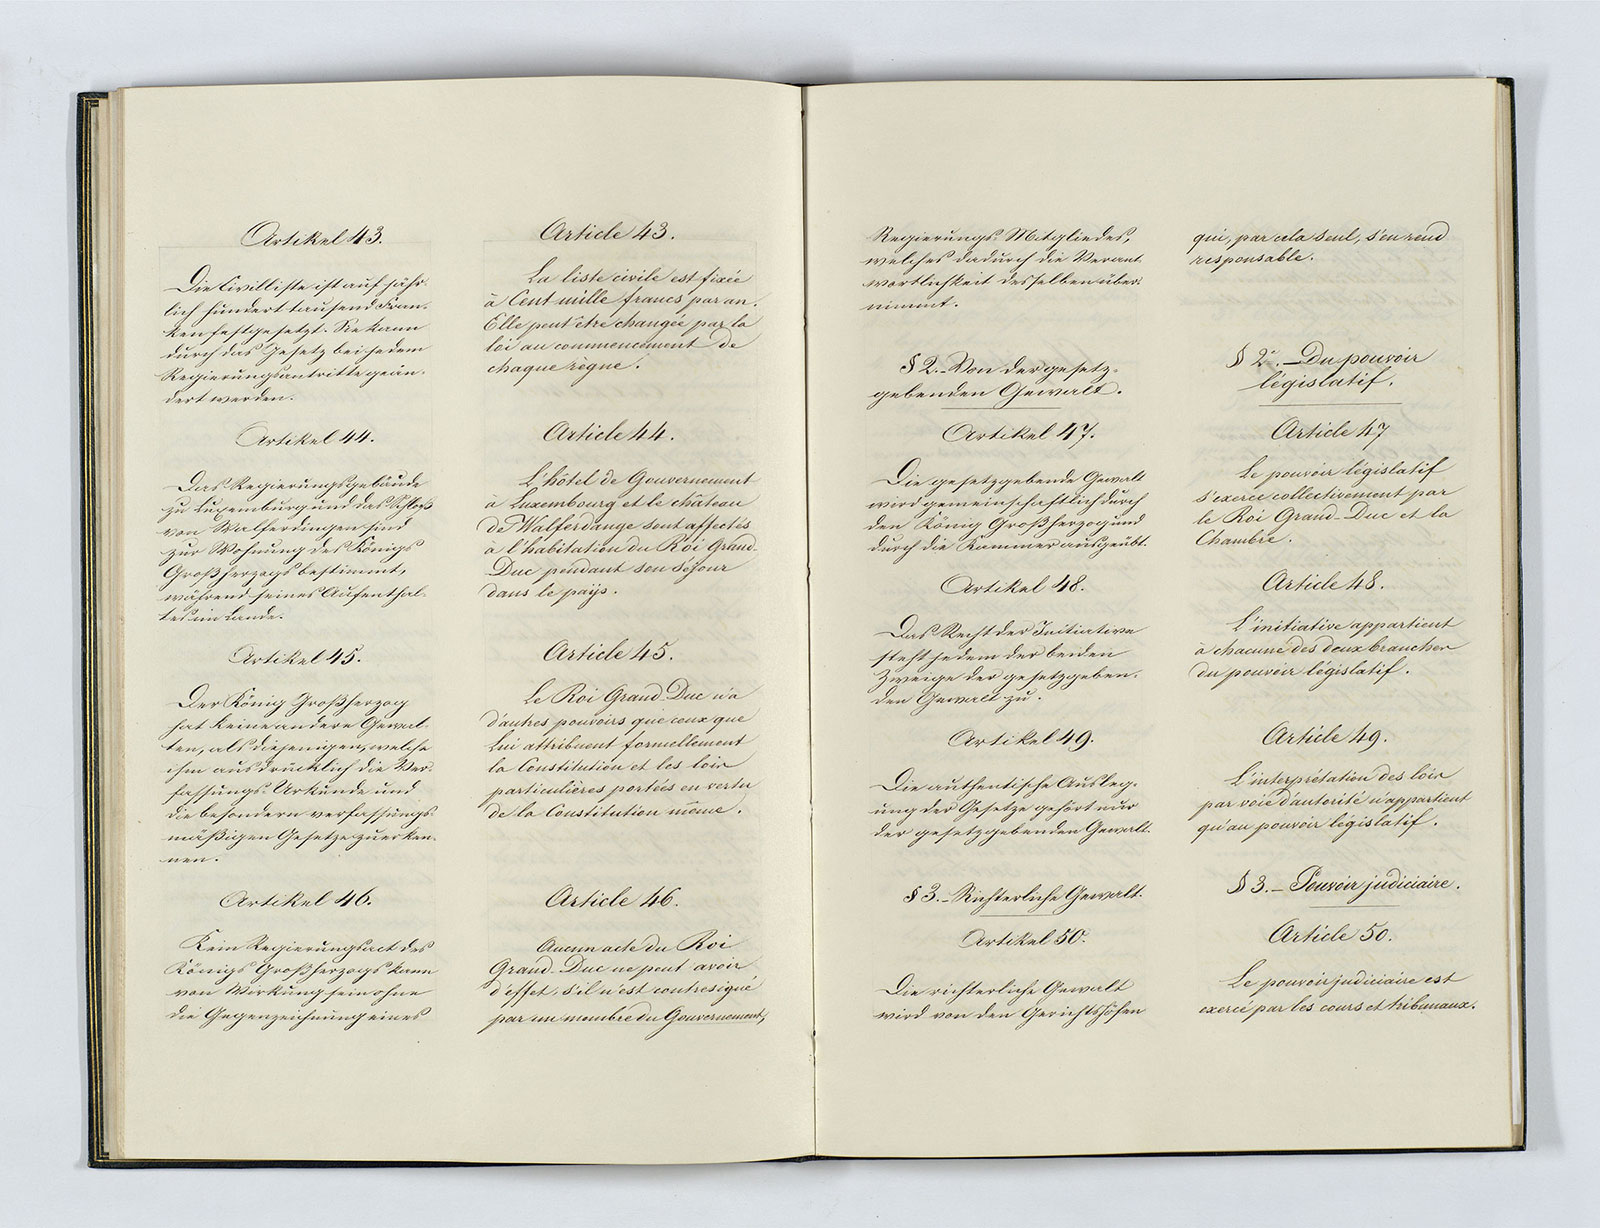 Artikel 43.
Die Civilliste ist auf jähr-
lich hundert tausend Fran-
ken festgesetzt. Sie kann
durch das Gesetz bei jedem
Regierungsantritte geän-
dert werden.
Artikel 44.
Das Regierungsgebäude
zu Luxemburg und das Schloß
von Walferdingen sind
zur Wohnung des Königs
Großherzogs bestimmt,
während seines Aufenthal-
tes im Lande.
Artikel 45.
Der König Großherzog
hat keine andere Gewal-
ten, als diejenigen, welche
ihm ausdrücklich die Ver-
fassungs-Urkunde und
die besondern verfassungs-
mäßigen Gesetze zuerken-
nen.
Artikel 46.
Kein Regierungsact des
Königs Großherzogs kann
von Wirkung sein ohne
die Gegenzeichnung eines
Article 43.
La liste civile est fixée
à Cent mille francs par an.
Elle peut être changée par la
loi au commencement de
chaque règne.
Article 44.
L'hôtel de Gouvernement
à Luxembourg et le château
de Walferdange sont affectés
à l'habitation du Roi Grand-
Duc pendant son séjour
dans le pays.
Article 45.
Le Roi Grand-Duc n'a
d'autres pouvoirs que ceux que
Lui attribuent formellement
la Constitution et les lois
particulières portées en vertu
de la Constitution même.
Article 46.
Aucun acte du Roi
Grand-Duc ne peut avoir
d'effet, s'il n'est contresigné
par un membre du Gouvernement,
Regierungs-Mitgliedes,
welches dadurch die Verant-
wortlichkeit desselben über-
nimmt.
§ 2.- Von der gesetz-
gebenden Gewalt.
Artikel 47.
Die gesetzgebende Gewalt
wird gemeinschaftlich durch
den König Großherzog und
durch die Kammer ausgeübt.
Artikel 48.
Das Recht der Initiative
steht jedem der beiden
Zweige der gesetzgeben-
den Gewalt zu.
Artikel 49.
Die authentische Ausleg-
ung der Gesetze gehört nur
der gesetzgebenden Gewalt.
§ 3.- Richterliche Gewalt.
Artikel 50.
Die richterliche Gewalt
wird von den Gerichtshöfen
qui, par cela seul, s'en rend
responsable.
§ 2.- Du pouvoir
législatif.
Article 47
Le pouvoir législatif
s'exerce collectivement par
le Roi Grand-Duc et la
Chambre.
Article 48.
L'initiative appartient
à chacune des deux branches
du pouvoir législatif.
Article 49.
L'interprétation des lois
par voie d'autorité n'appartient
qu'au pouvoir législatif.
§ 3.- Pouvoir judiciaire.
Article 50.
Le pouvoir judiciaire est
exercé par les cours et tribunaux.